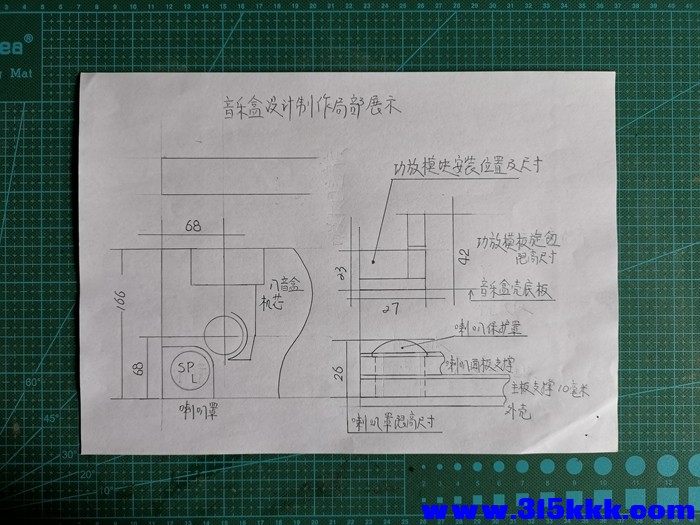 音乐盒设计制作局部展示
功放模块安装位置及尺寸
68
166
68
八音盒
机芯
SP
L
喇叭罩
23
27
42
功放模板旋钮
距高尺寸
音乐盒壳底板
喇叭保护罩
喇叭面板支撑
26
主板支撑10毫米
外壳
喇叭罩距高尺寸
Mat
60°
45°
www.315kkk.com